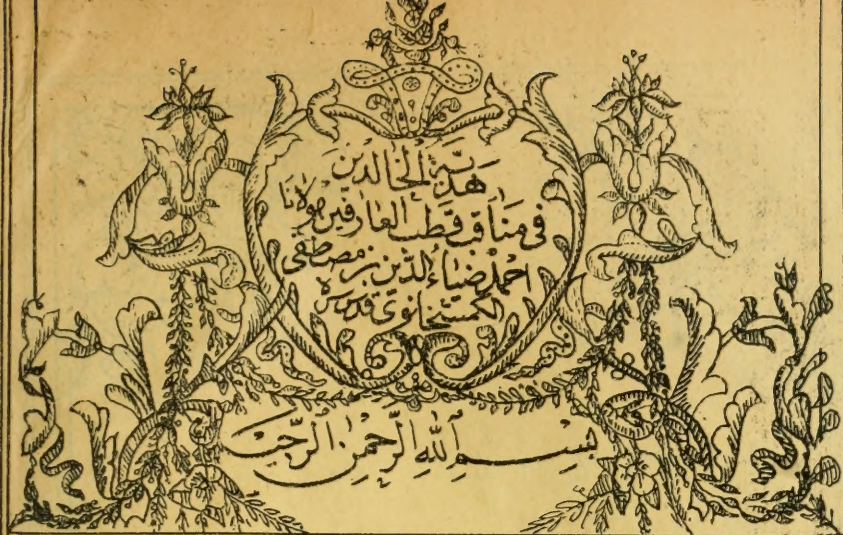 هدية الخالدين
فى مناقب قطب العارفين مولانا
احمد ضياء الدين بن مصطفى
الكمشخانوى قدس سره
بِسْمِ ٱللهِ ٱلرَّحْمٰنِ ٱلرَّحِيمِ